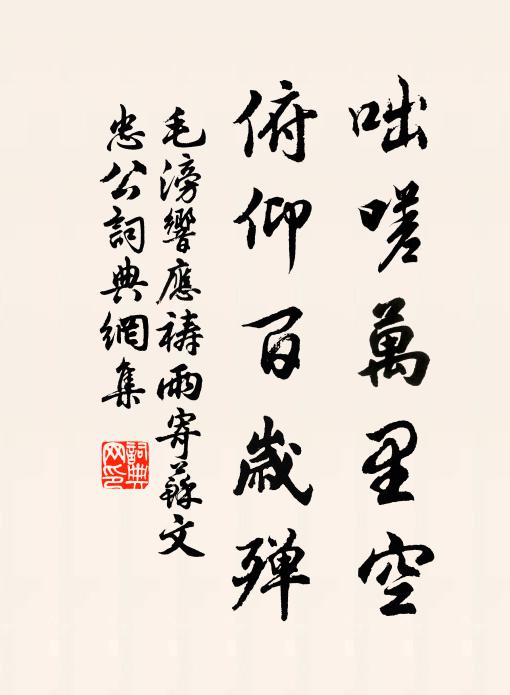 咄嗟萬里空
俯仰百歲殫
毛滂響應禱雨寄蘇文
忠公詞典網集
詞典
网印